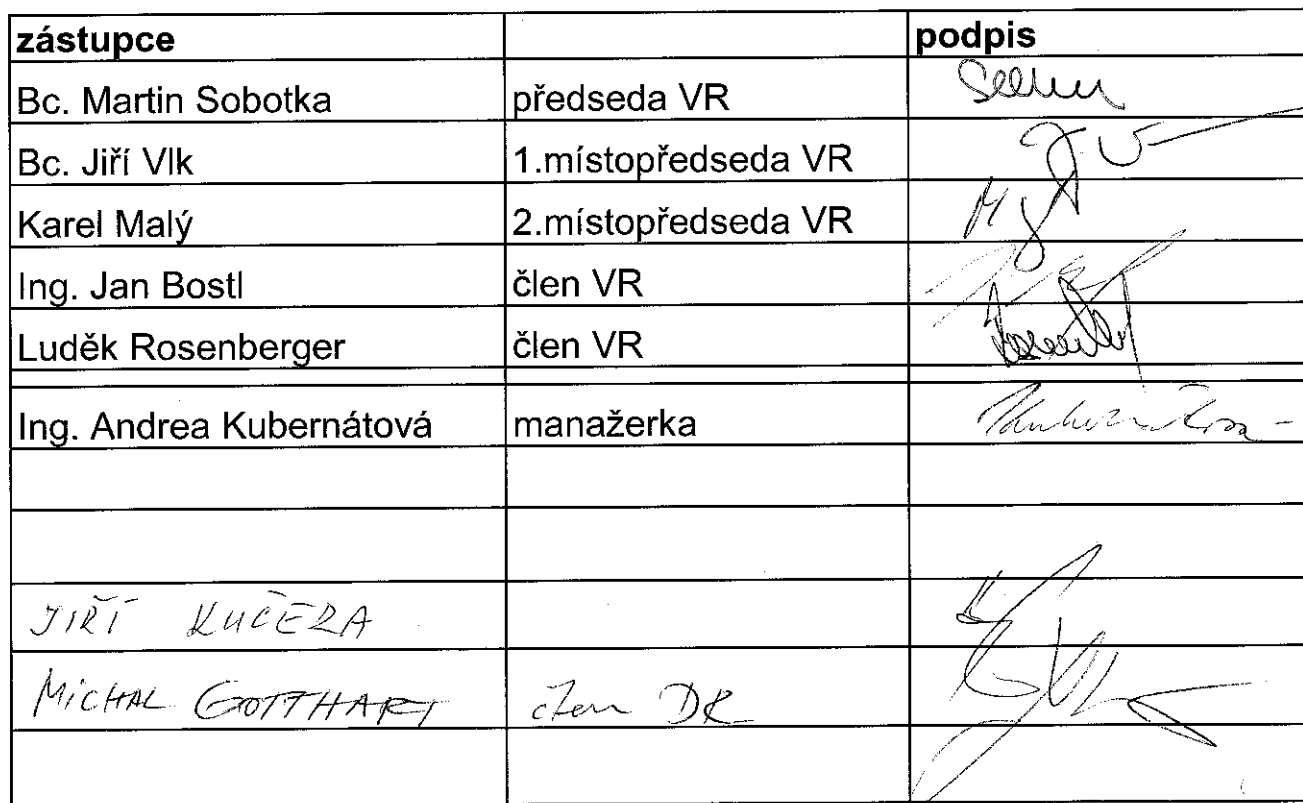 zástupce podpis
Bc. Martin Sobotka předseda VR
Bc. Jiří Vlk 1.místopředseda VR
Karel Malý 2.místopředseda VR
Ing. Jan Bostl člen VR
Luděk Rosenberger člen VR
Ing. Andrea Kubernátová manažerka
JIŘÍ KUČERA
MICHAL GOTTHART člen DR